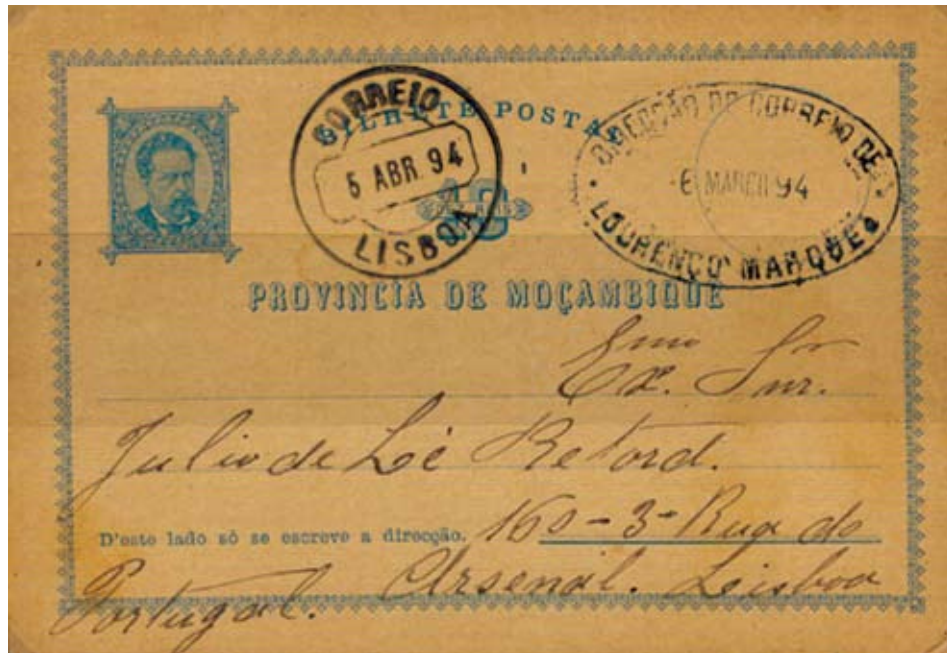 BILHETE POSTAL
CORREIO
5 ABR. 94
LISBOA
DIRECÇÃO DO CORREIO DE
6 MARCH 94
LOURENÇO MARQUES
PROVINCIA DE MOÇAMBIQUE
Exmo Snr.
Julio de Lé Retord.
D'este lado só se escreve a direcção. 160-3- Rua do
Arsenal. Lisboa
Portugal.